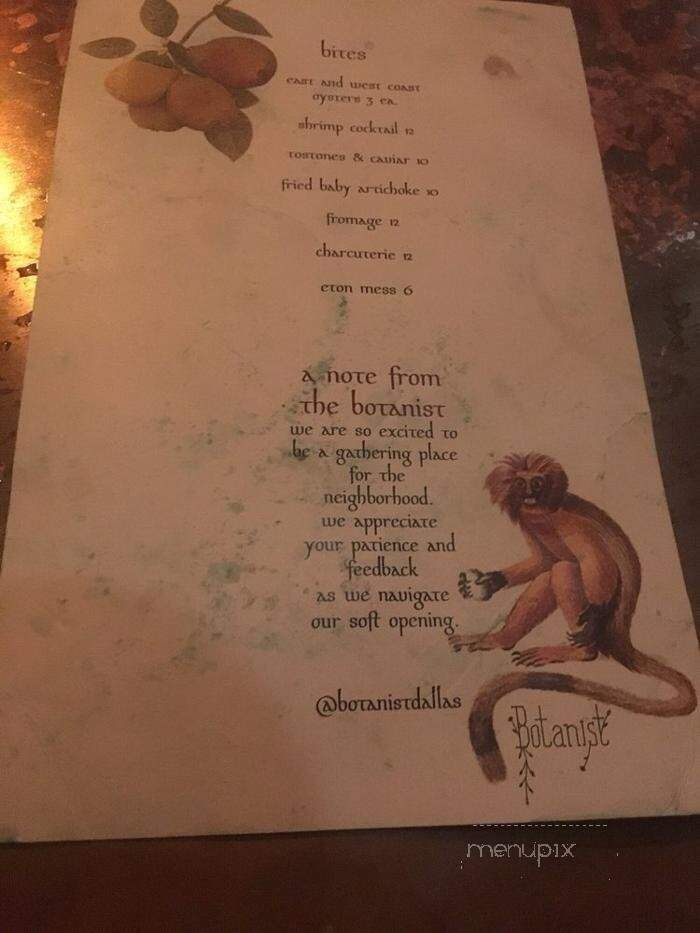 bites
east and west coast
oysters 3 ea.
shrimp cocktail 12
tostones & caviar 10
fried baby artichoke 10
fromage 12
charcuterie 12
eton mess 6
a note from
the botanist
we are so excited to
be a gathering place
for the
neighborhood.
we appreciate
your patience and
feedback
as we navigate
our soft opening.
@botanistdallas
Botanist
menupix